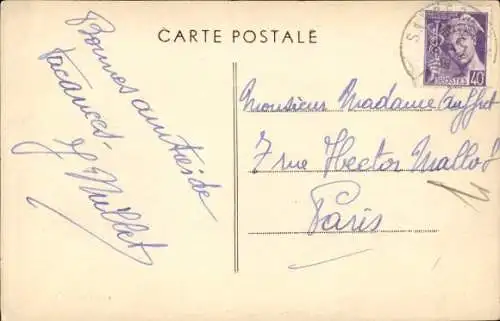 CARTE POSTALE
Bonnes amitiés de
vacances
J Mullet
Monsieur Madame Auffret
7 rue Hector Mallot
Paris
POSTES 40